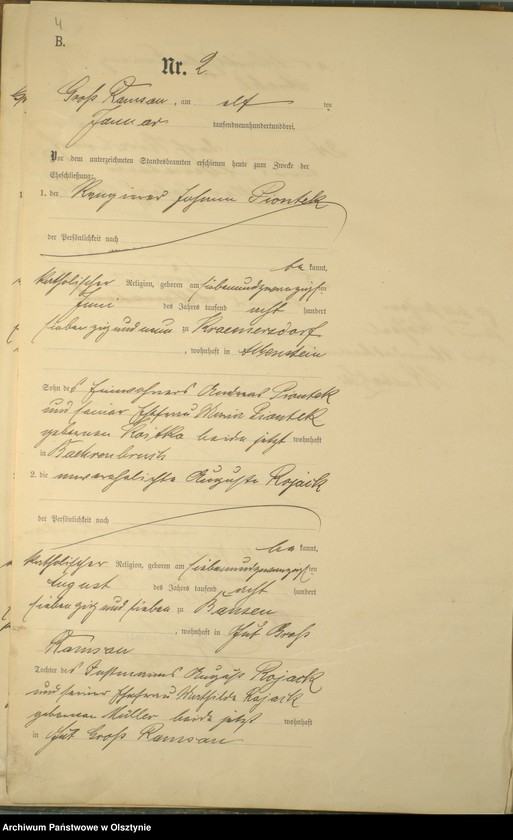 4
B.
Nr. 2
Groß Ramsau, am elf ten
Januar tausendneunhundertunddrei.
Vor dem unterzeichneten Standesbeamten erschienen heute zum Zwecke der
Eheschließung:
1. der Rangierer Johann Piontek
der Persönlichkeit nach
be kannt,
katholischer Religion, geboren am siebenundzwanzigsten
Juni des Jahrs tausend acht hundert
siebenzig und neun zu Kraemersdorf
, wohnhaft in Allenstein
Sohn des Einwohners Andreas Piontek
und seiner Ehefrau Maria Piontek
geborenen beide jetzt wohnhaft
in
2. die unverehelichte Auguste Rojack
der Persönlichkeit nach
be kannt,
katholischer Religion, geboren am siebenundzwanzigsten
August des Jahrs tausend acht hundert
siebenzig und sieben zu Bansen
, wohnhaft in Gut Groß
Ramsau
Tochter des Instmanns August Rojack
und seiner Ehefrau Mathilde Rojack
geborenen Müller beide jetzt wohnhaft
in Gut Groß Ramsau
Archiwum Państwowe w Olsztynie